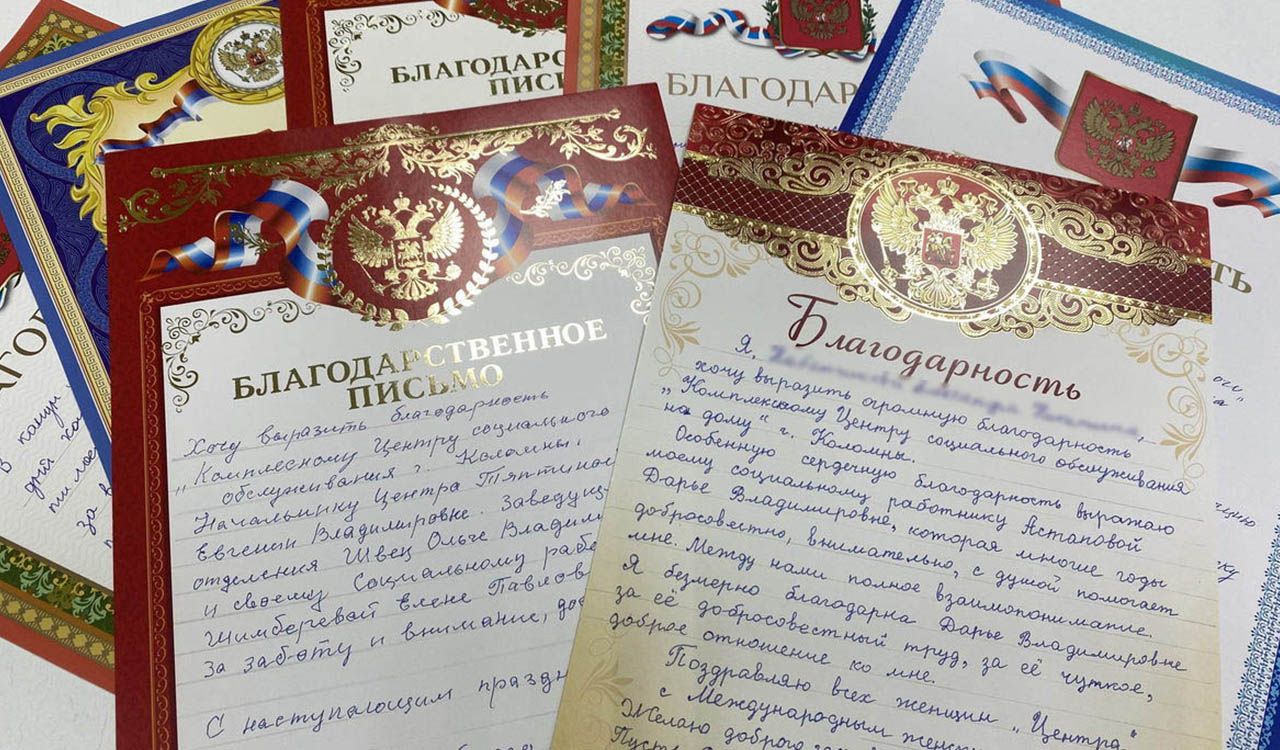 БЛАГОДАРС
ПИСЬ
БЛАГОДАР
БЛАГОДАРСТВЕННОЕ
ПИСЬМО
Хочу выразить благодарность
„Комплесному Центру социального
обслуживания г. Коломны.
Начальнику Центра Тяптиной
Евгении Владимировне. Заведующ
отделения Швец Ольге Владими
и своему социальному рабо
Шимберевай Елене Павлов
за заботу и внимание, до
С наступающим праздн
Благодарность
Я,
хочу выразить огромную благодарность
„Комплексному Центру социального обслуживания
на дому“ г. Коломны.
Особенную сердечную благодарность выражаю
моему социальному работнику Астаповой
Дарье Владимировне, которая многие годы
добросовестно, внимательно, с душой помогает
мне. Между нами полное взаимопонимание.
Я безмерно благодарна Дарье Владимировне
за её добросовестный труд, за её чуткое,
доброе отношение ко мне.
Поздравляю всех женщин „Центра“
с Международным женским
Желаю доброго
Пусть